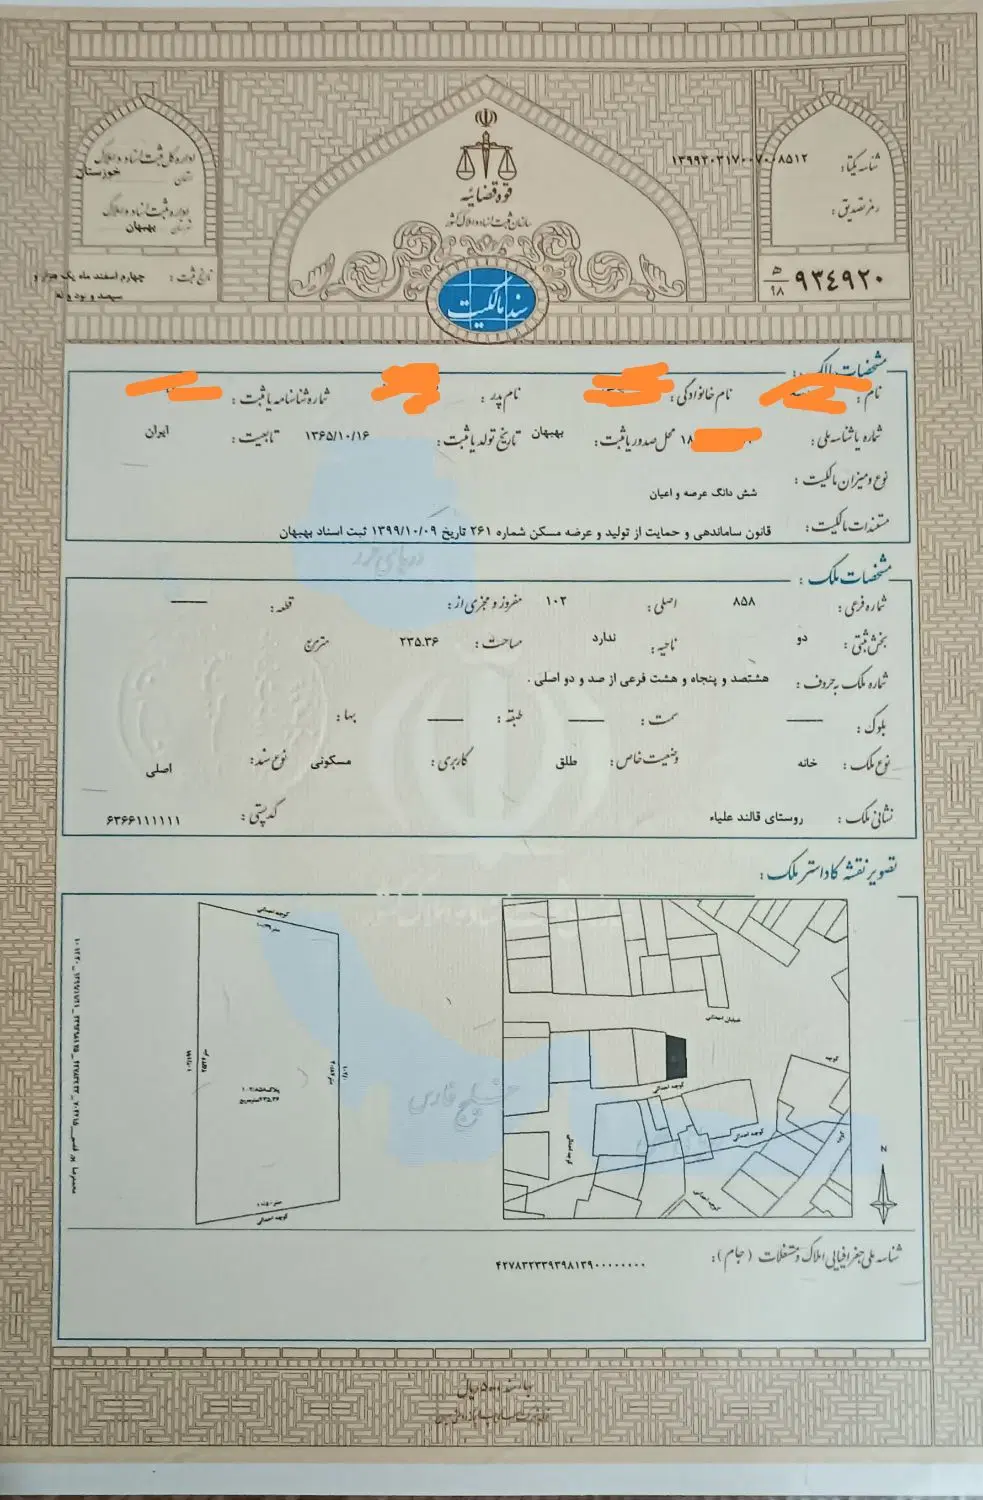 قوه قضائیه
سازمان ثبت اسناد و املاک کشور
سند مالکیت
شناسه یکتا:
رمز تصدیق:
۹۳۴۹۲۰
۹۸
اداره کل ثبت اسناد و املاک
استان خوزستان
اداره ثبت اسناد و املاک
شهرستان بهبهان
تاریخ ثبت: چهارم اسفند ماه یک هزار و
سیصد و نود و نه
مشخصات مالک:
نام: نام خانوادگی: نام پدر: شماره شناسنامه یا ثبت:
شماره یا شناسه ملی: محل صدور یا ثبت: بهبهان تاریخ تولد یا ثبت: ۱۳۶۵/۱۰/۱۶ تابعیت: ایران
نوع و میزان مالکیت: شش دانگ عرصه و اعیان
مستندات مالکیت: قانون ساماندهی و حمایت از تولید و عرضه مسکن شماره ۲۶۱ تاریخ ۱۳۹۹/۱۰/۰۹ ثبت اسناد بهبهان
دریای خزر
مشخصات ملک:
شماره فرعی: ۸۵۸ اصلی: ۱۰۲ مفروز و مجزی از: قطعه: ——
بخش ثبتی: دو ناحیه: ندارد مساحت: ۲۳۵.۳۶ مترمربع
شماره ملک به حروف: هشتصد و پنجاه و هشت فرعی از صد و دو اصلی .
بلوک: —— سمت: —— طبقه: —— بها:
نوع ملک: خانه وضعیت خاص: طلق کاربری: مسکونی نوع سند: اصلی
نشانی ملک: روستای قالند علیاء کدپستی: ۶۳۶۶۱۱۱۱۱۱
تصویر نقشه کاداستر ملک:
کوچه احداثی
کوچه احداثی
خیابان احداثی
کوچه احداثی
کوچه احداثی
کوچه احداثی
کوچه
خلیج فارس
N
شناسه ملی جغرافیایی املاک و مستغلات (جام):